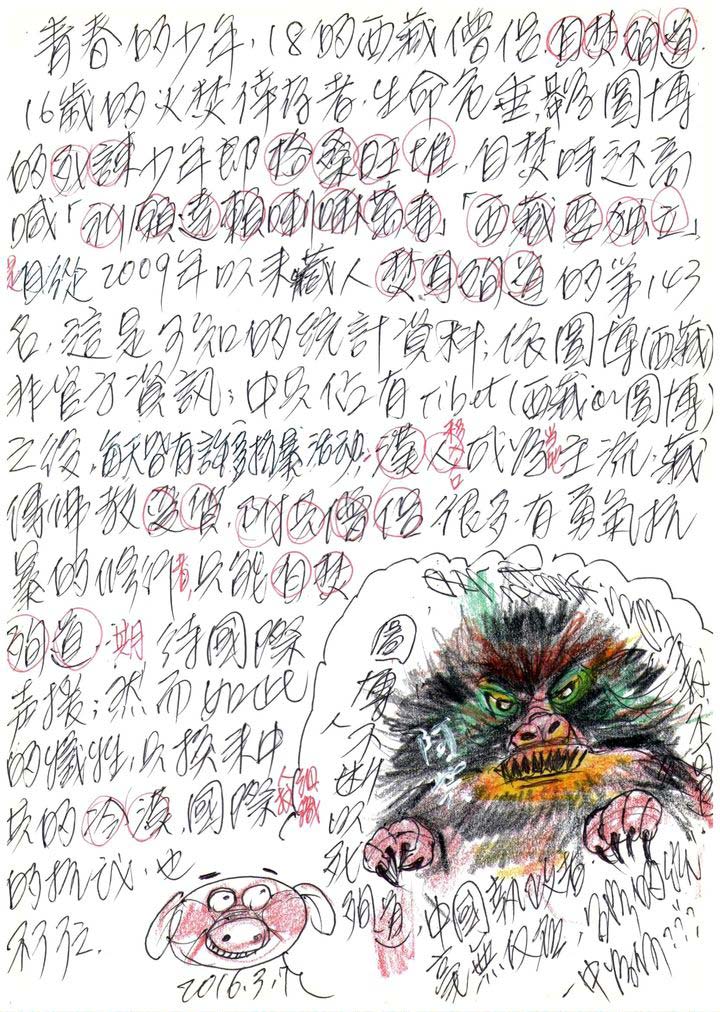 青春的少年,18的西藏僧侶.自焚殉道.
16歲的火焚倖存者.生命危垂,圖博
的死諫少年即格桑旺堆,自焚時还高
喊「永願達賴喇嘛萬壽」「西藏要独立」
是自從2009年以來藏人焚身殉道的第143
名,這是可知的統計資料;依圖博(西藏)
非官方資訊;中共佔有Tibet(西藏or圖博)
之後,每天皆有許多抗暴活動;漢人移民成為當地主流;藏
傳佛教變質,附共僧侶很多.有勇氣抗
暴的修行者,只能自焚
殉道.期待國際
声援;然而如此
的犧牲,只換來中
共的冷漠,國際組織
的抗议,也
圖博人不斷以死殉道,中國執政者
毫無
2016.3.